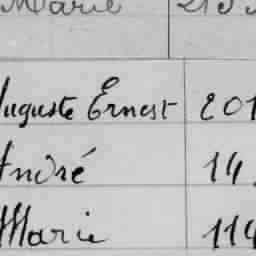 Marie 213
Auguste Ernest 201
André 14
Marie 114